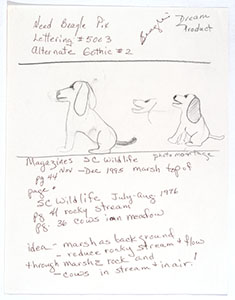 Need Beagle Pix
Lettering #5003
Alternate Gothic #2
Beagle
Dream
Product
photo montage
Magazines SC Wildlife
pg 44 Nov - Dec 1995 marsh top of
page.
SC Wildlife July-Aug 1976
pg 41 rocky stream
pg. 36 cows in meadow
idea - marsh as background
- reduce rocky stream & flow
through marsh & rock and
- cows in stream & in air!